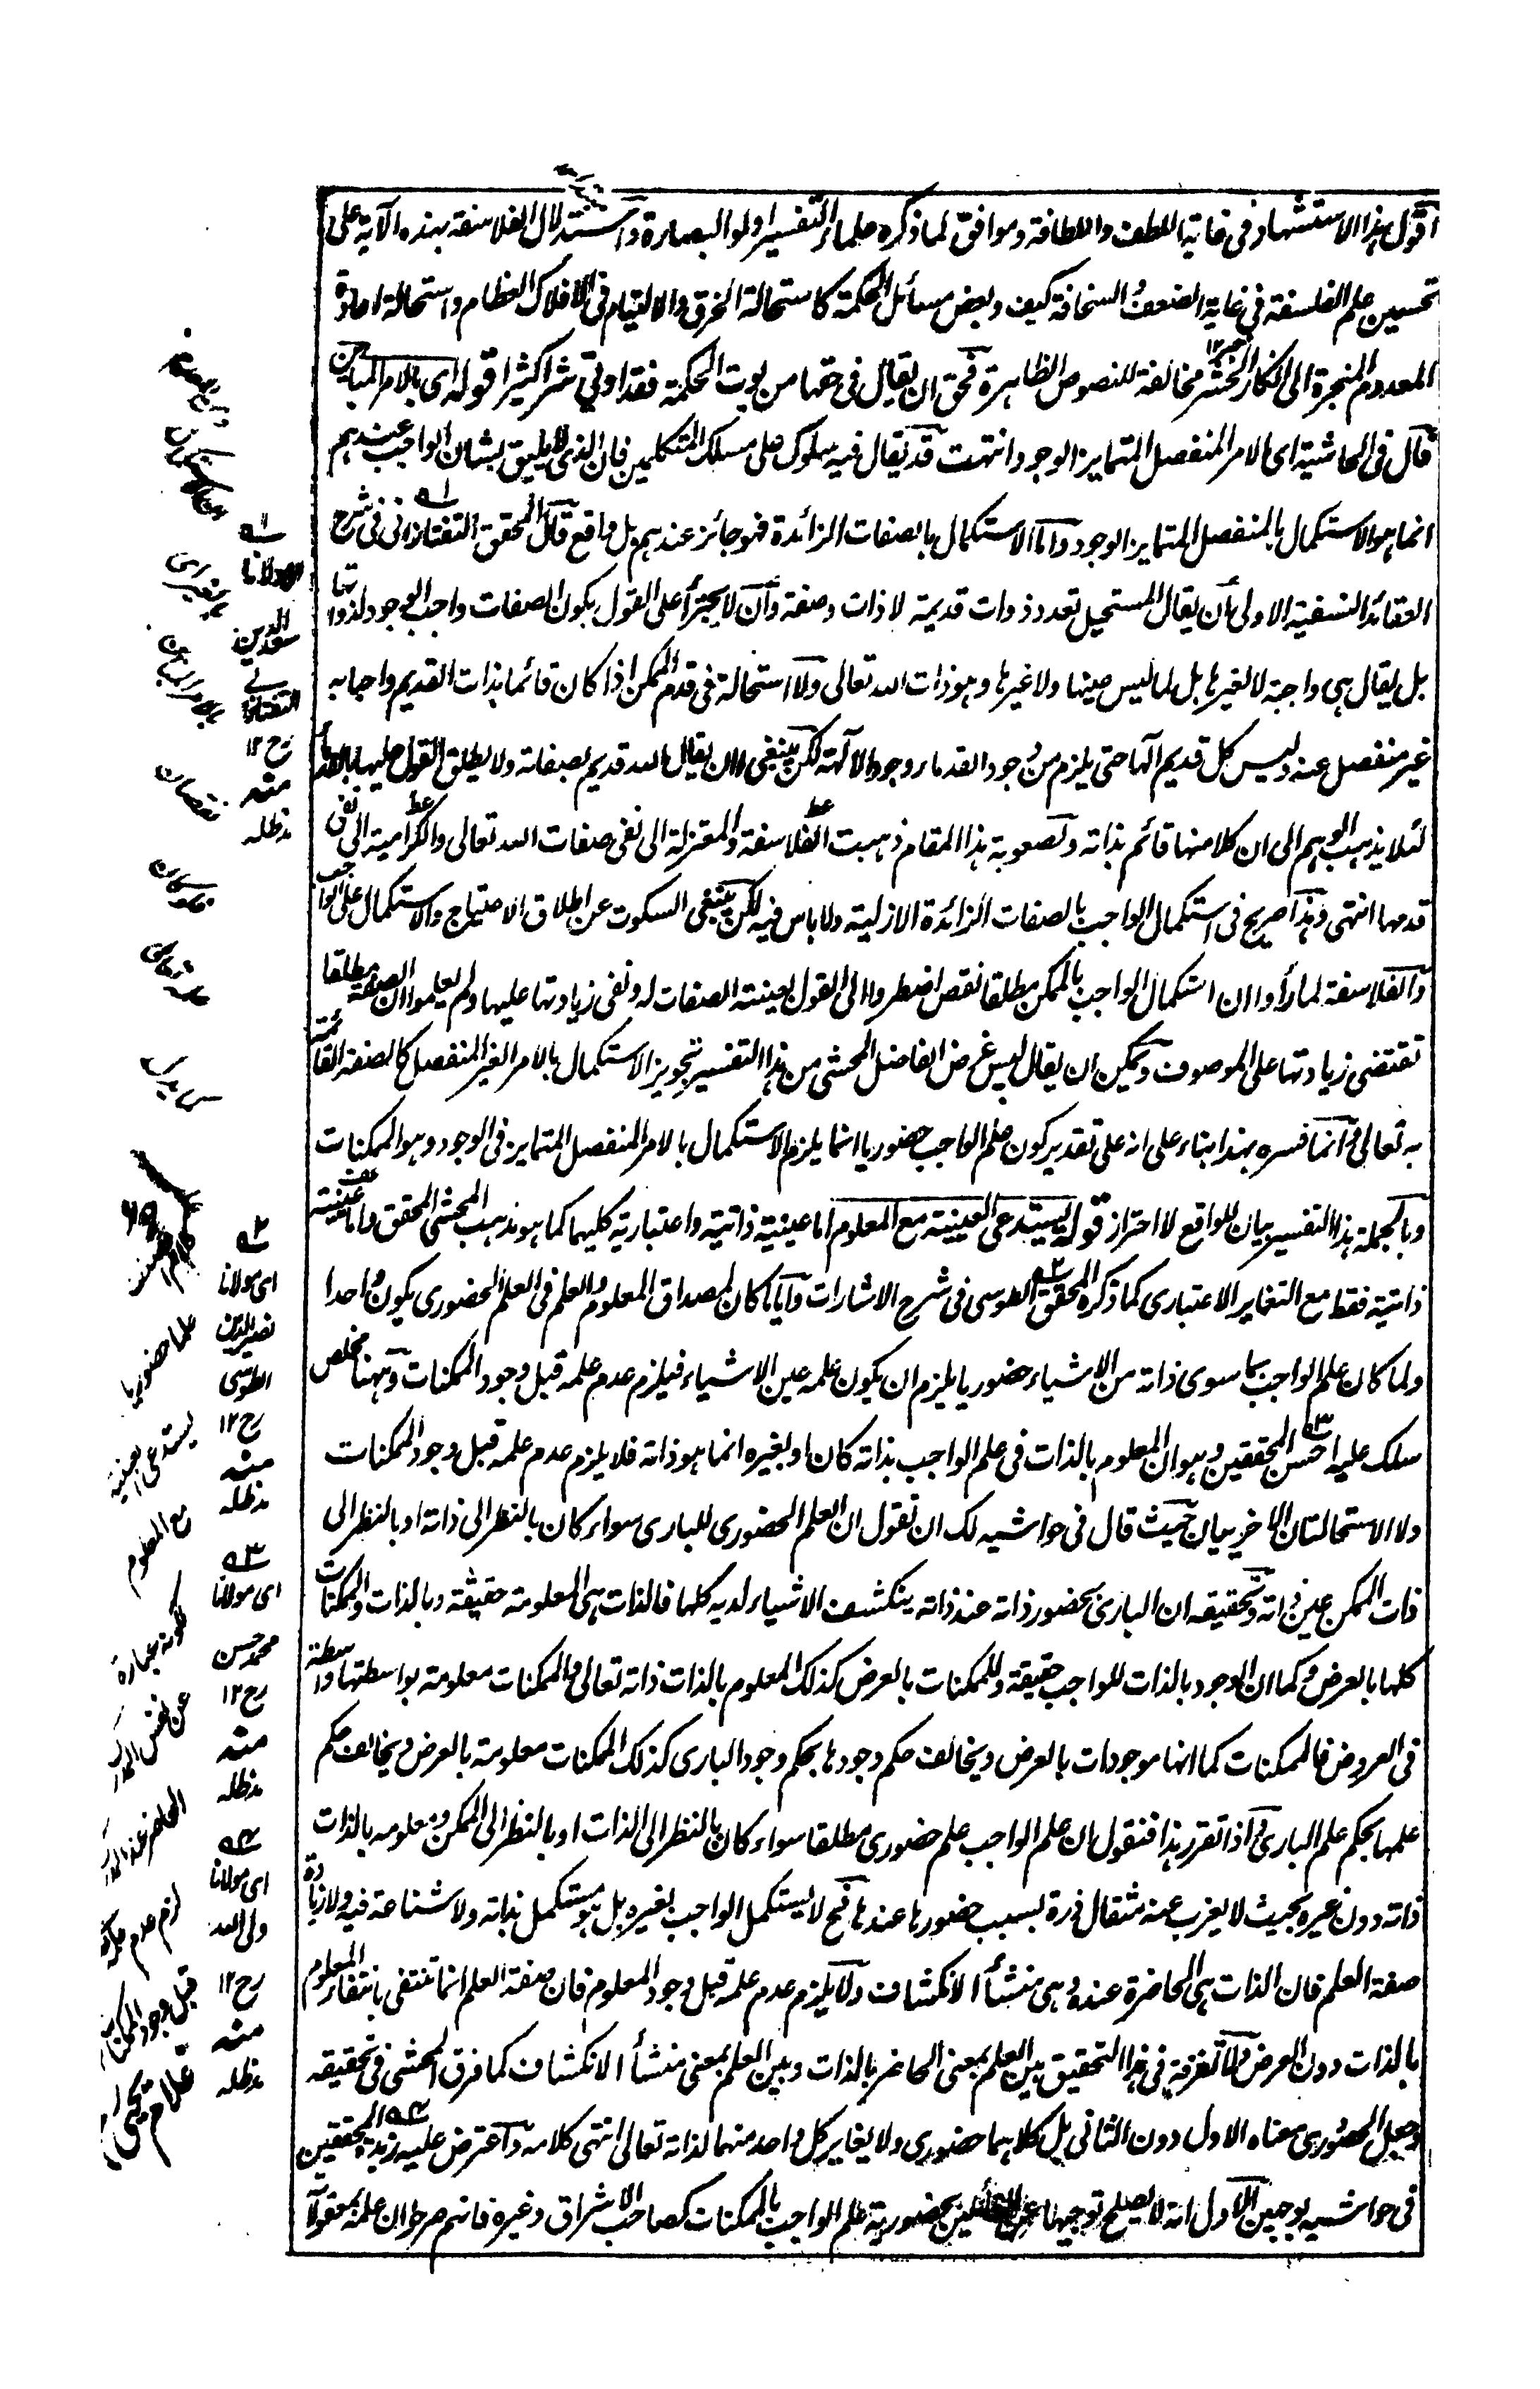 اقول هذا الاستشهاد في غاية اللطف واللطافة وموافق لما ذكره علماء التفسير اولو البصارة واستدلال الفلاسفة بهذه الآية على
تحسين علم الفلسفة في غاية الضعف السخافة كيف وبعض مسائل الحكمة كاستحالة الخرق والالتيام في الافلاك العظام واستحالة اعادة
المعدوم المنجرة الى انكار الحشر مخالفة للنصوص الظاهرة فحق ان يقال في حقها من يوت الحكمة فقد اوتي شرا كثيرا قوله اى بالامر المباين
قال في الحاشية اى الامر المنفصل المتمايز الوجود انتهت قد يقال فيه سلوك على مسلك المتكلمين فان الذى لا يليق بشان الواجب عندهم
انما هو الاستكمال بالمنفصل المتمايز الوجود واما الاستكمال بالصفات الزائدة فهو جائز عندهم بل واقع قال المحقق التفتازانى في شرح
العقائد النسفية الاولى أن يقال المستحيل تعدد ذوات قديمة لا ذات وصفة وأن لا يجترأ على القول بكون الصفات واجب الوجود لذواتها
بل يقال هى واجبة لا لغيرها بل لما ليس عينها ولا غيرها وهو ذات الله تعالى ولا استحالة في قدم الممكن اذا كان قائما بذات القديم واجبا به
غير منفصل عنه وليس كل قديم الها حتى يلزم من وجود القدماء وجود الآلهة لكن ينبغى ان يقال الله قديم بصفاته ولا يطلق القول عليها بالقدماء
لئلا يذهب الوهم الى ان كلا منها قائم بذاته ولصعوبة هذا المقام ذهبت الفلاسفة والمعتزلة الى نفى صفات الله تعالى والكرامية الى نفى
قدمها انتهى وهذا صريح في استكمال الواجب بالصفات الزائدة الازلية ولا باس فيه لكن ينبغى السكوت عن اطلاق الاحتياج والاستكمال على الواجب
والفلاسفة لما رأوا ان استكمال الواجب بالممكن مطلقا نقص اضطروا الى القول بعينية الصفات له ونفى زيادتها عليها ولم يعلموا ان الصفة مطلقا
تقتضى زيادتها على الموصوف ويمكن ان يقال ليس غرض الفاضل المحشى من هذا التفسير تجويز الاستكمال بالامر الغير المنفصل كالصفة القائمة
به تعالى وانما فسره بهذا بناء على انه على تقدير كون علم الواجب حضوريا انما يلزم الاستكمال بالامر المنفصل المتمايز في الوجود وهو الممكنات
وبالجملة هذا التفسير بيان للواقع لا احتراز قوله يستدعى العينية مع المعلوم اما عينية ذاتية واعتبارية كليهما كما هو مذهب المحشى المحقق واما عينية
ذاتية فقط مع التغاير الاعتبارى كما ذكره المحقق الطوسى في شرح الاشارات وأيا ما كان لمصداق المعلوم والعلم في العلم الحضورى يكون واحدا
ولما كان علم الواجب بما سوى ذاته من الاشياء حضوريا يلزم ان يكون علمه عين الاشياء فيلزم عدم علمه قبل وجود الممكنات وههنا مخلص
سلك عليه احسن المحققين وهو ان المعلوم بالذات في علم الواجب بذاته كان او بغيره انما هو ذاته فلا يلزم عدم علمه قبل وجود الممكنات
ولا الاستحالتان الاخريان حيث قال في حواشيه لك ان تقول ان العلم الحضورى للبارى سواء كان بالنظر الى ذاته او بالنظر الى
ذات الممكن عين ذاته وتحقيقه ان البارى بحضور ذاته عند ذاته ينكشف الاشياء لديه كلها فالذات هى المعلومة حقيقة وبالذات والممكنات
كلها بالعرض وكما ان الوجود بالذات للواجب حقيقة وللممكنات بالعرض كذلك المعلوم بالذات ذاته تعالى والممكنات معلومة بواسطتها واسطة
في العروض فالممكنات كما انها موجودات بالعرض ويخالف حكم وجودها بحكم وجود البارى كذلك الممكنات معلومة بالعرض ويخالف حكم
علمها بحكم علم البارى واذا تقرر هذا فنقول ان علم الواجب علم حضورى مطلقا سواء كان بالنظر الى الذات او بالنظر الى الممكن ومعلومه بالذات
ذاته دون غيره بحيث لا يعزب عنه مثقال ذرة بسبب حضورها عندها فح لا يستكمل الواجب بغيره بل هو مستكمل بذاته ولا شناعة فيه ولا زيادة
صفة العلم فان الذات هى الحاضرة عنده وهى منشأ الانكشاف ولا يلزم عدم علمه قبل وجود المعلوم فان صفة العلم انما تنتفى بانتفاء المعلوم
بالذات دون العرض ولا تفرقة في هذا التحقيق بين العلم بمعنى الحاضر بالذات وبين العلم بمعنى منشأ الانكشاف كما فرق المحشى في تحقيقه
وجعل الحضورى معناه الاول دون الثانى بل كلاهما حضورى ولا يغاير كل واحد منهما لذاته تعالى انتهى كلامه واعترض عليه زبدة المحققين
في حواشيه بوجهين الاول انه لا يصلح توجيها عن القائلين بحضورية علم الواجب بالممكنات كصاحب الاشراق وغيره فانهم صرحوا ان علمه بمعقولا
۱ه
مولانا
سعد الدين
التفتازانى
رح ۱۲
منه
مدظله
۲ه
اى مولانا
نصير الدين
الطوسى
رح ۱۲
منه
مدظله
۳ه
اى مولانا
محمد حسن
رح ۱۲
منه
مدظله
۴ه
اى مولانا
ولى الله
رح ۱۲
منه
مدظله
علما حضوريا
يستدعى العينية
مع المعلوم
لكونه عبارة
عن نفس
الحاضر عند المدرك
لزم عدم علمه
قبل وجود الممكنات
غلام يحيى